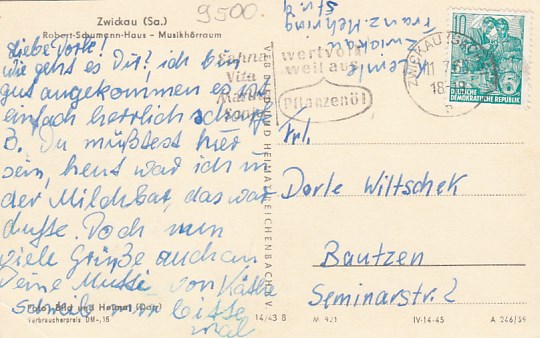 Zwickau (Sa.)
Robert-Schumann-Haus - Musikhörraum
9500.
Liebe Dorle!
Wie geht es Dir? ich bin
gut angekommen es ist
einfach herrlich
B. Du müßtest hier
sein, heut war ich in
der Milchbar, das war
dufte. Doch nun
viele Grüße auch an
Deine Mutti von Käthe
Schreib mir bitte
mal
Foto: Bild und Heimat
Verbraucherpreis DM -,15
14/43 B
VEB BILD UND HEIMAT REICHENBACH I. V.
Zwickau
Franz-Mehring
Str. 9
Vita
wertvoll
weil aus
Pflanzenöl
ZWICKAU
18
10
DEUTSCHE
DEMOKRATISCHE REPUBLIK
Frl.
Dorle Wiltschek
Bautzen
Seminarstr. 2
M 921
IV-14-45
A 246/59